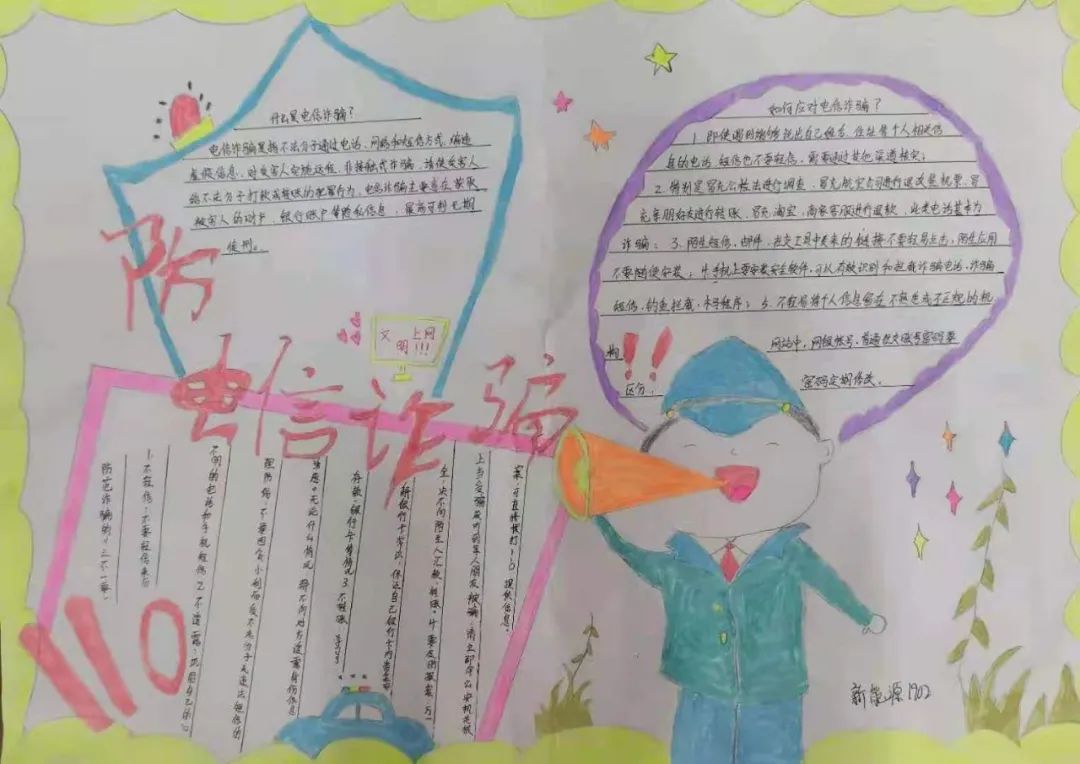 什么是电信诈骗？
电信诈骗是指不法分子通过电话、网络和短信方式，编造
虚假信息，对受害人实施远程、非接触式诈骗，诱使受害人
给不法分子打款或转账的犯罪行为，电信诈骗主要意在获取
被害人的财户、银行账户等隐私信息，最高可判无期
徒刑。
防
电信诈骗
文明
上网
!!!
如何应对电信诈骗？
1.即使遇到能够说出自己姓名、住址等个人相关信
息的电话、短信也不要轻信，需要通过其他渠道核实；
2.特别是冒充公检法进行调查、冒充航空公司进行退改签机票、冒
充年朋好友进行转账、冒充淘宝，商家客服进行退款，此类电话基本为
诈骗；3.陌生短信、邮件、社交工具中发来的链接不要轻易点击，陌生应用
不要随便安装；4.手机上要安装安全软件，可以有效识别和拦截诈骗电话、诈骗
短信、钓鱼拦截、木马程序；5.不轻易将个人信息留在不熟悉或不正规的机
构
网站中，网银帐号、普通社交账号密码要
区分，
密码定期修改。
!!
防范诈骗的"三不一要"
1.不轻信：不要轻信来历
不明的电话和手机短信 2.不透露：巩固自己的心
理防线，不要因贪小利而受不法分子或违法短信的
诱惑。无论什么情况，都不向对方透露身份信息、
存款、银行卡等情况 3.不转账 学习了
解银行卡常识，保证自己银行卡内资金安
全，决不向陌生人汇款、转账。4.要及时报案：万一
上当受骗或听到亲人朋友被骗，请立即向公安机关报
案，可直接拨打110，提供信息。
110
新能源1902